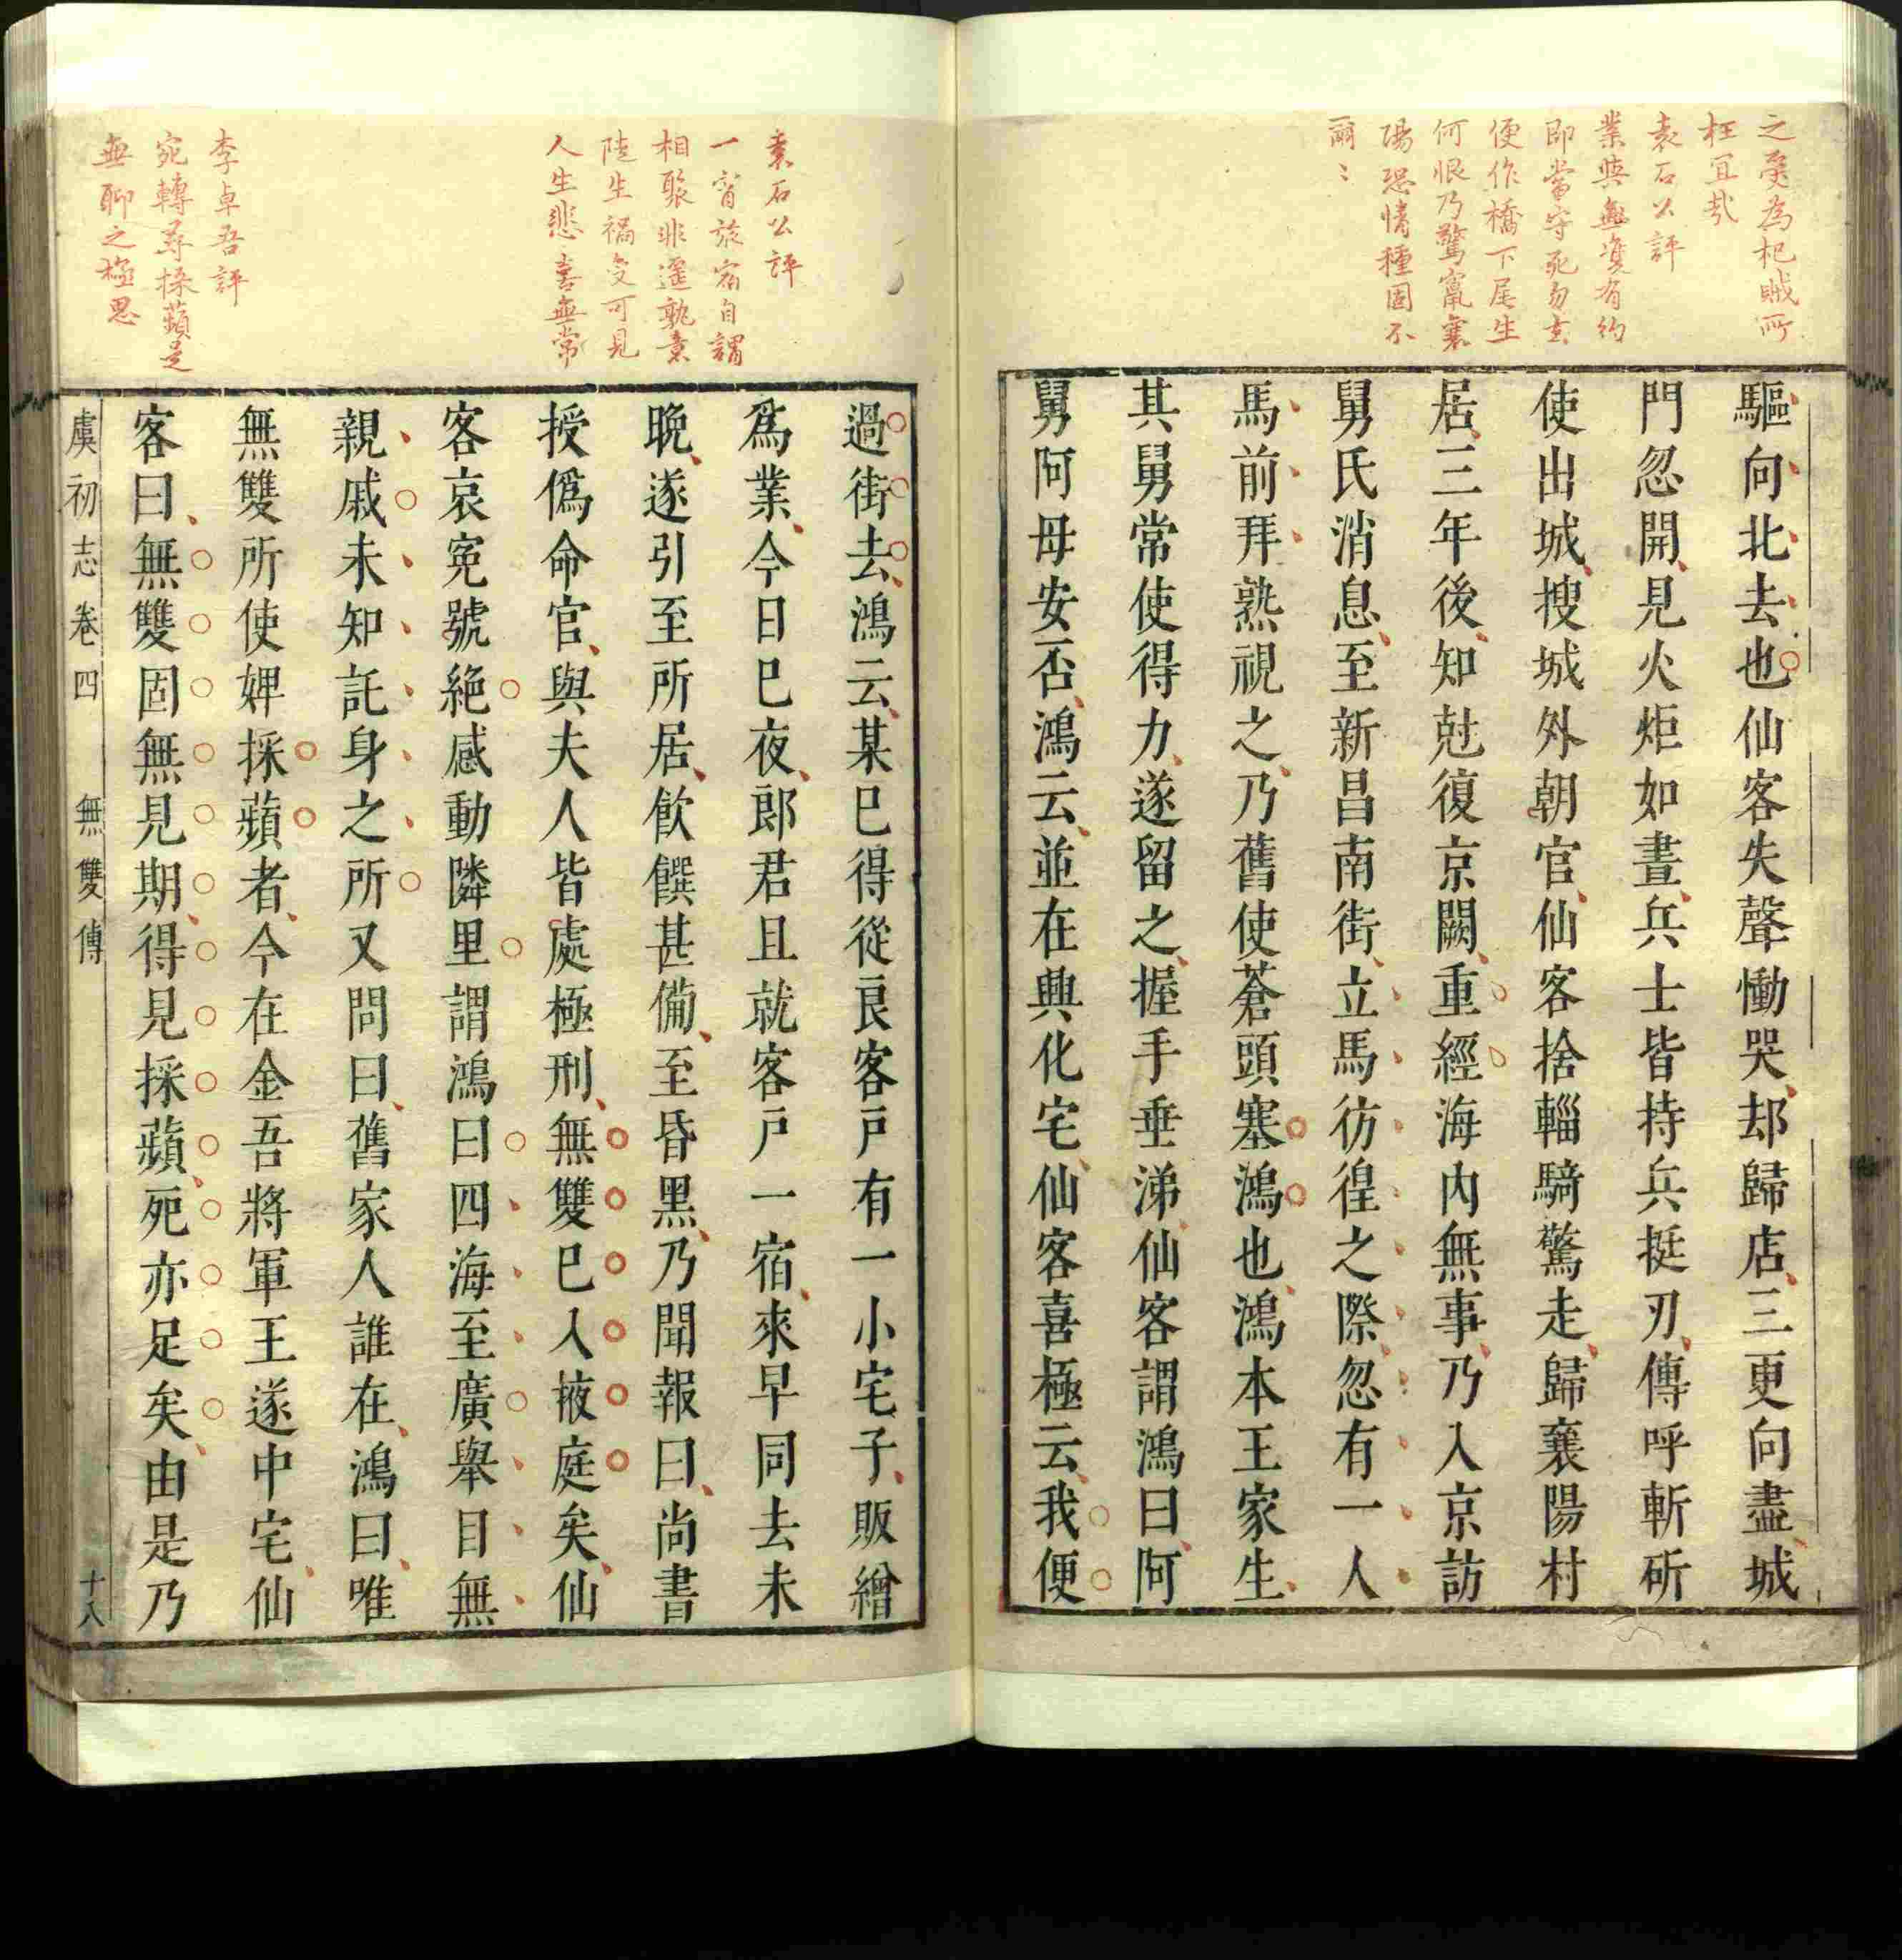 之戹為杞賊所
枉冝哉
袁石公評
業與無䨇有約
即當守死勿去
便作橋下尾生
何恨乃驚竄襄
陽恐情種固不
爾〻
驅向北去也仙客失聲慟哭却歸店三更向盡城
門忽開見火炬如晝兵士皆持兵挺刃傳呼斬斫
使出城搜城外朝官仙客捨輜騎驚走歸襄陽村
居三年後知尅復京闕重經海內無事乃入京訪
舅氏消息至新昌南街立馬彷徨之際忽有一人
馬前拜熟視之乃舊使蒼頭塞鴻也鴻本王家生
其舅常使得力遂留之握手垂涕仙客謂鴻曰阿
舅阿母安否鴻云並在興化宅仙客喜極云我便
袁石公評
一宵旅宿自謂
相聚非遥孰意
陡生禍变可見
人生悲喜無常
李卓吾評
宛轉尋採蘋是
無聊之極思
過街去鴻云某巳得從良客戸有一小宅子販繒
爲業今日巳夜郎君且就客戸一宿來早同去未
晚遂引至所居飲饌甚備至昏黑乃聞報曰尚書
授僞命官與夫人皆處極刑無雙巳入掖庭矣仙
客哀冤號絶感動隣里謂鴻曰四海至廣舉目無
親戚未知託身之所又問曰舊家人誰在鴻曰唯
無雙所使婢採蘋者今在金吾將軍王遂中宅仙
客曰無雙固無見期得見採蘋死亦足矣由是乃
虞初志卷四 無雙傳 十八